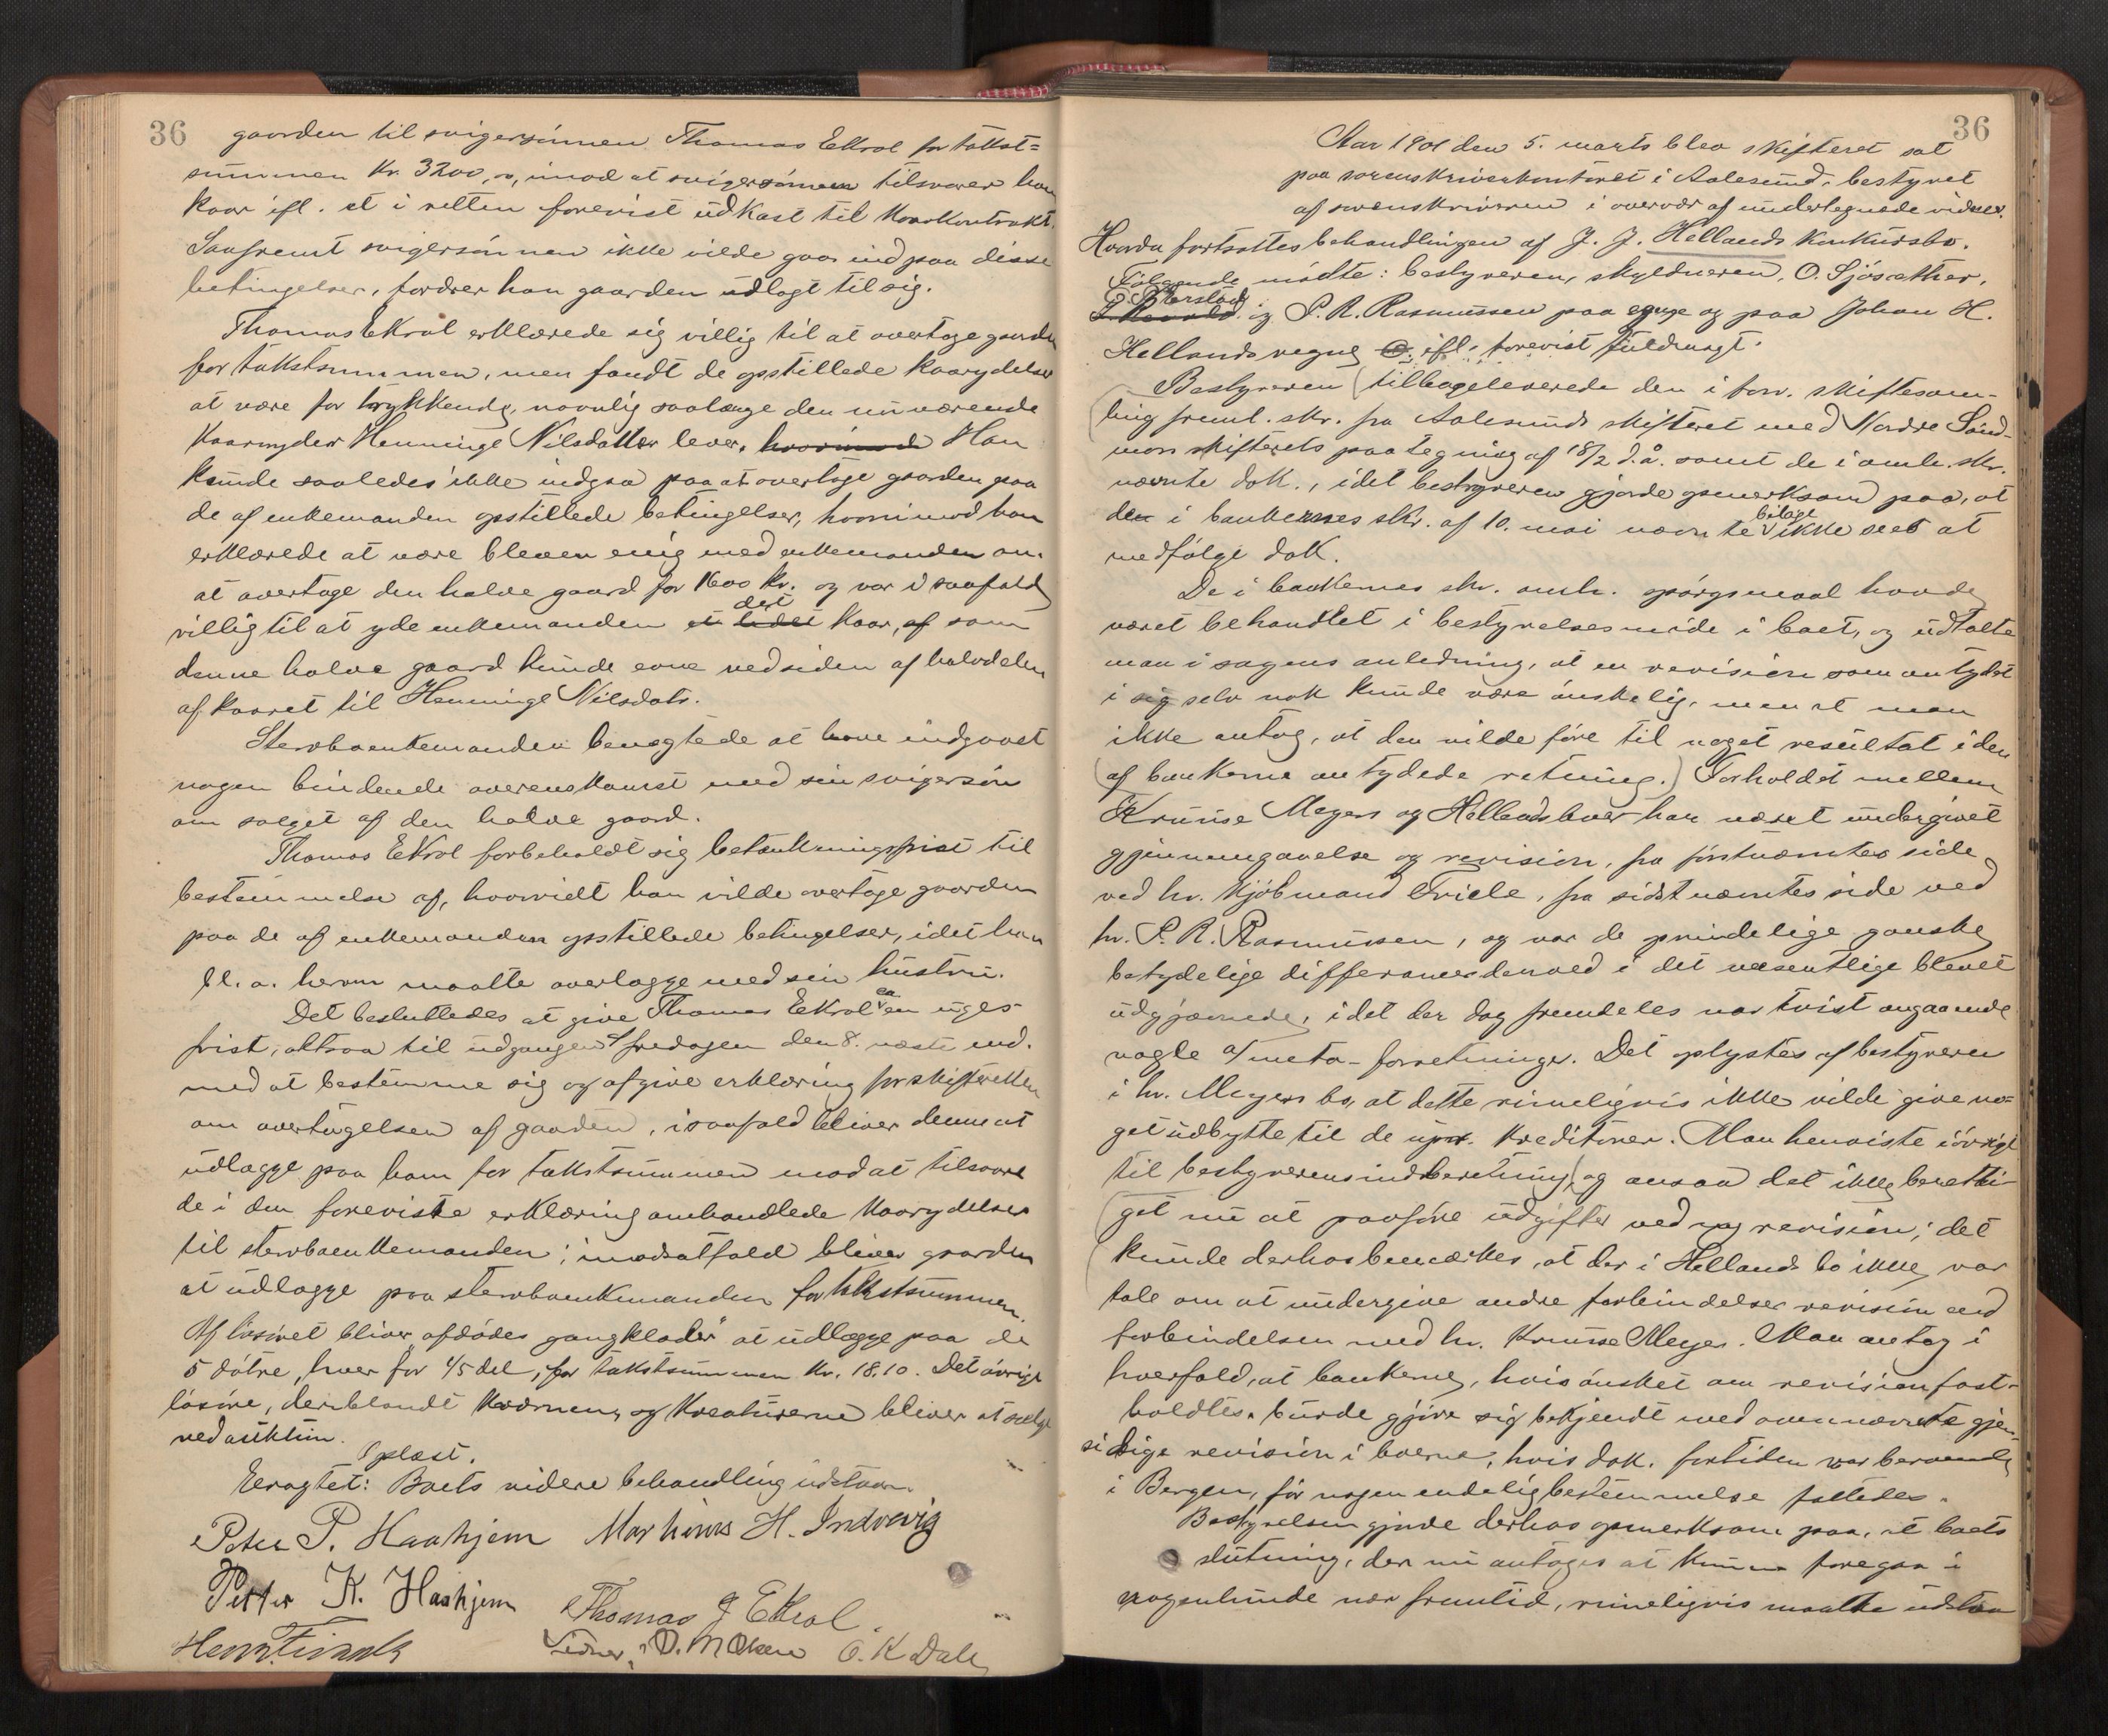 36
gaarden til svigersønnen Thomas Ekrol for takst=
summen Kr. 3200,00, imod at svigersønnen tilsvarer ham
kaar ifl. et i retten forevist udkast til kaarkontrakt.
Saafremt svigersønnen ikke vilde gaa ind paa disse
betingelser, fordrer han gaarden udlagt til sig.
Thomas Ekrol erklærede sig villig til at overtage gaarden
for takstsummen, men fandt de opstillede kaarydelser
at være for trykkende, navnlig saalænge den nuværende
kaarnyder Henninge Nilsdatter lever. hvorimod Han
kunde saaledes ikke indgaa paa at overtage gaarden paa
de af enkemanden opstillede betingelser, hvorimod han
erklærede at være bleven enig med enkemanden om
at overtage den halve gaard for 1600 kr. og var i saafald
villig til at yde enkemanden et lidet det kaar, af som
denne halve gaard kunde evne ved siden af halvdelen
af kaaret til Henninge Nilsdatr.
Stervboenkemanden benegtede at have indgaaet
nogen bindende overenskomst med sin svigersøn
om salget af den halve gaard.
Thomas Ekrol forbeholdt sig betænkningsfrist til
bestemmelse af, hvorvidt han vilde overtage gaarden
paa de af enkemanden opstillede betingelser, idet han
bl. a. herom maatte overlægge med sin hustru.
Det besluttedes at give Thomas Ekrol ca en uges
frist, altsaa til udgangen af fredagen den 8. næste md.
med at bestemme sig og afgive erklæring for skifteretten
om overtagelsen af gaarden, i saafald bliver denne at
udlægge paa ham for takstsummen mod at tilsvare
de i den foreviste erklæring omhandlede kaarydelser
til stervboenkemanden; i modsat fald bliver gaarden
at udlægge paa stervboenkemanden for takstsummen.
Af løsøret bliver "afdødes gangklæder" at udlægge paa de
5 døtre, hver for 1/5 del, for takstsummen kr. 18.10. Det øvrige
løsøre, deriblandt kværnen, og kreaturerne bliver at sælge
ved auktion.
Oplæst.
Eragtet: Boets videre behandling udstaar.
Peter P. Haahjem Marthinus H. Indrevig
Petter K. Haahjem Thomas J Ekrol
Vidner: O. M Olsen O. K Dale
36
Aar 1901 den 5. marts blev skifteret sat
paa sorenskriverkontoret i Aalesund, bestyret
af sorenskriveren i overvær af undertegnede vidner.
Hvorda fortsattes behandlingen af J. J. Hellands konkursbo.
Følgende mødte: bestyreren, skyldneren, O. Sjøsæther,
og P. R. Rasmussen paa egne og paa Johan H.
Hellands vegne ifl. forevist fuldmagt.
Bestyreren (tilbageleverede den i forr. skiftesam-
ling freml. skr. fra Aalesunds skifteret med Nordre Sønd-
mørs skifterets paategning af 18/2 d.å. samt de i omh. skr.
nævnte dok., idet bestyreren gjorde opmerksom paa, at
de i bankernes skr. af 10. mai nævnte bilage ikke sees at
medfølge dok.
De i bankernes skr. omh. spørgsmaal havde
været behandlet i bestyrelsesmøde i boet, og udtalte
man i sagens anledning, at en revision som antydet
i sig selv nok kunde være ønskelig, men at man
ikke antog, at den vilde føre til noget resultat i den
(af bankerne antydede retning.) Forholdet mellem
Krunse Meyers og Hellands boer har været undergivet
gjennemgaaelse og revision, fra førstnævntes side
ved hr. kjøbmand Friele, fra sidstnævntes side ved
hr. P. R. Rasmussen, og var de prindelige ganske
betydelige differancer derved i det væsentlige blevet
udgjævnede, idet der dog fremdeles var tvist angaaende
nogle a/meta-forretninger. Det oplystes af bestyreren
i hr. Meyers bo, at dette rimeligvis ikke vilde give no-
get udbytte til de upr. kreditorer. Man henviste iøvrigt
til bestyrerens indberetning, og ansaa det ikke beretti-
get nu at paaføre udgifter ved ny revision; det
kunde derhos bemærkes, at der i Hellands bo ikke var
tale om at undergive andre forbindelser revision end
forbindelsen med hr. Krunse Meyer. Man antog i
hverfald, at bankerne, hvis ønsket om revision fast-
holdtes, burde gjøre sig bekjendt med ovennævnte gjen-
sidige revision i boerne, hvis dok. fortiden var beroende
i Bergen, før nogen endelig bestemmelse fattedes.
Bestyrelsen gjorde derhos opmerksom paa, at boets
slutning, der nu antages at kunne foregaa i
nogenlunde nær fremtid, rimeligvis maatte udstaa